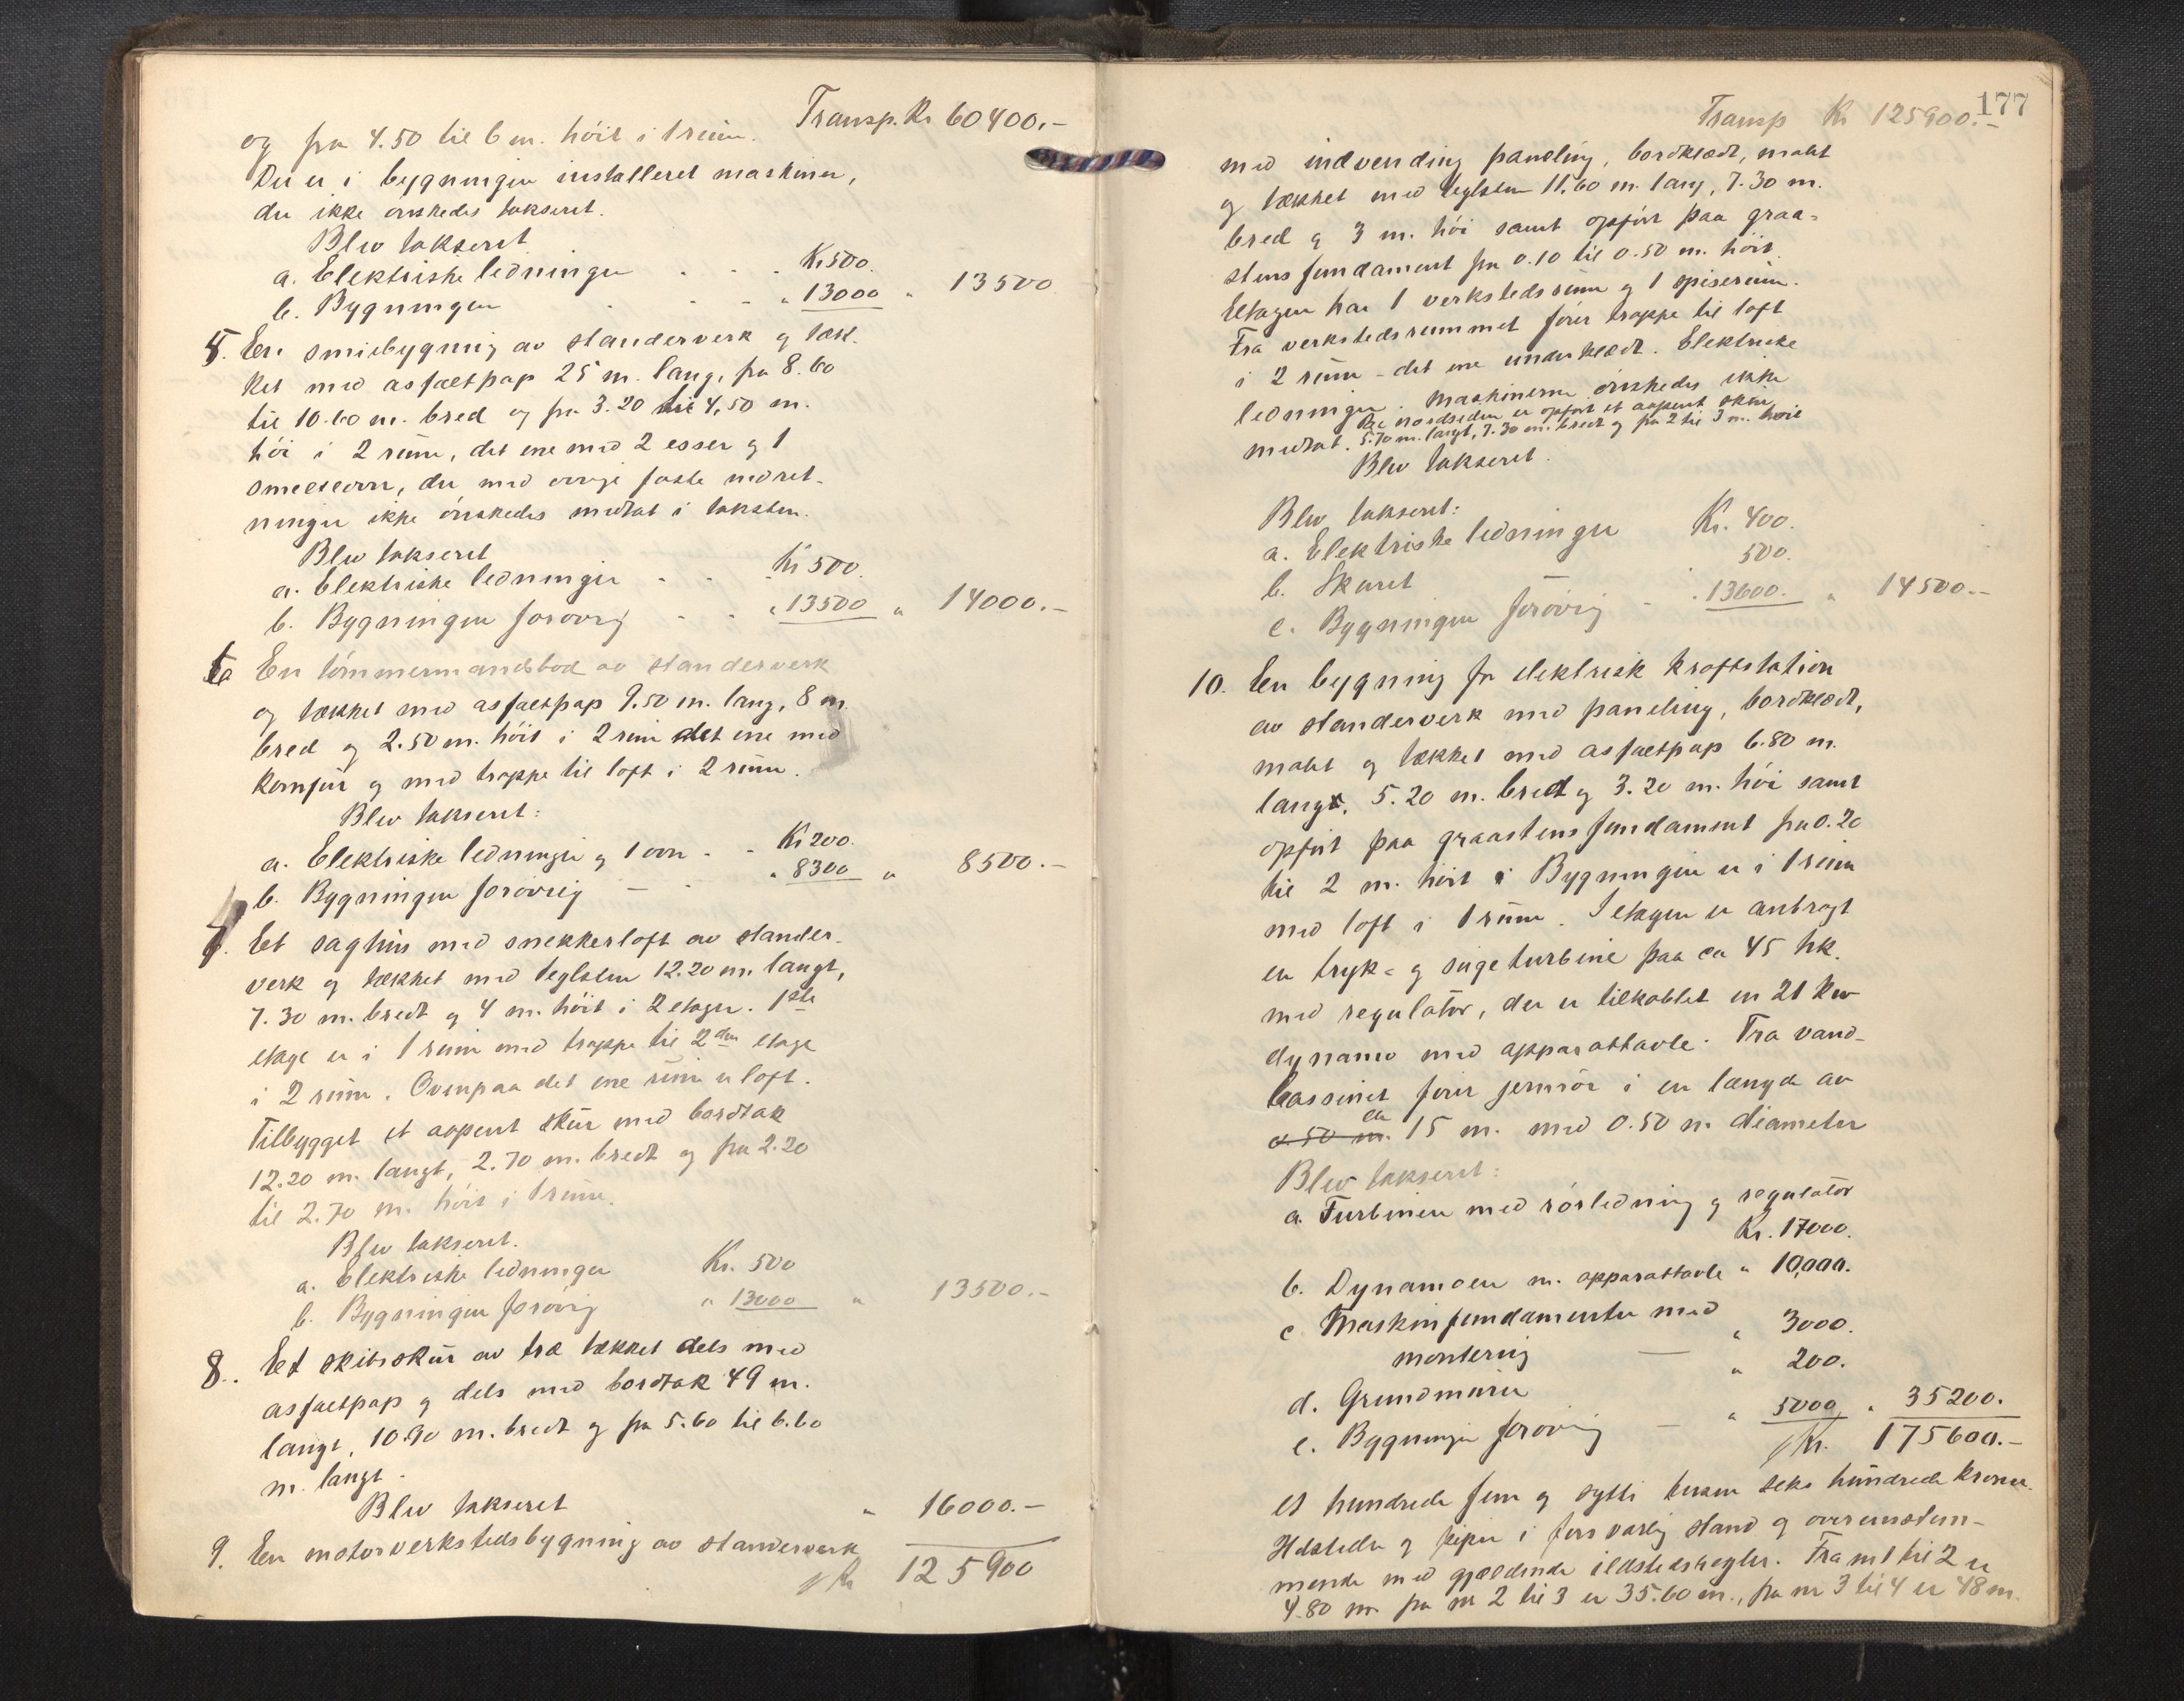 Transp. Kr 60400.-
og fra 4.50 til 6 m. höit i 1 rum.
Der er i bygningen installeret maskiner,
der ikke önskedes takseret.
Blev takseret
a. Elektriske ledninger . . . Kr 500.
b. Bygningen . . - " 13000 " 13500
5. En smiebygning av standerverk og tæk-
ket med asfaltpap 25 m. lang, fra 8.60
til 10.60 m. bred og fra 3.20 til 4,50 m.
höi i 2 rum, det ene med 2 esser og 1
smelteovn, der med övrige faste indret-
ninger ikke önskedes medtat i taksten.
Blev takseret
a. Elektriske ledninger . . . Kr 500.
b. Bygningen forövrig . . " 13500 " 14000.-
6 En tömmermandsbod av standerverk
og tækket med asfaltpap 9.50 m. lang, 8 m.
bred og 2.50 m. höit i 2 rum det ene med
komfur og med trappe til loft i 2 rum.
Blev takseret:
a. Elektriske ledninger og 1 ovn . - Kr 200.
b. Bygningen forövrig - . " 8300 " 8500.-
7. Et saghus med snekkerloft av stander-
verk og tækket med teglsten 12.20 m. langt,
7.30 m. bredt og 4 m. höit i 2 etager. 1ste
etage er i 1 rum med trappe til 2den etage
i 2 rum. Ovenpaa det ene rum er loft.
Tilbygget et aapent skur med bordtak
12.20 m. langt, 2.70 m. bredt og fra 2.20
til 2.70 m. höit i 1 rum.
Blev takseret.
a. Elektriske ledninger Kr. 500
b. Bygningen forövrig " 13000 " 13500.-
8. Et skibsskur av træ tækket dels med
asfaltpap og dels med bordtak 49 m.
langt, 10.90 m. bredt og fra 5.60 til 6.60
m. langt.
Blev takseret " 16000.-
9. En motorverkstedsbygning av standerverk
Kr 125900
177
Transp Kr 125900.-
med indvending paneling, bordklædt, malt
og tækket med teglsten 11.60 m. lang, 7.30 m.
bred og 3 m. höi samt opfört paa graa-
stens fundament fra 0.10 til 0.50 m. höit.
Etagen har 1 verkstedsrum og 1 spiserum.
Fra verkstedsrummet förer trappe til loft
i 2 rum - det ene underklædt. Elektriske
ledninger. Maskinerne önskedes ikke
medtat. Paa nordsiden er opfört et aapent skur
5.70 m. langt, 7.30 m. bredt og fra 2 til 3 m. höit
Blev takseret.
Blev takseret:
a. Elektriske ledninger Kr. 400.
b. Skuret 500.
c. Bygningen forövrig - " 13600. " 14500.-
10. En bygning for elektrisk kraftstation
av standerverk med paneling, bordklædt,
malt og tækket med asfaltpap 6.80 m.
lang, 5.20 m. bred og 3.20 m. höi samt
opfört paa graastens fundament fra 0.20
til 2 m. höit. Bygningen er i 1 rum
med loft i 1 rum. I etagen er anbragt
en tryk- og sugeturbine paa ca 45 hk.
med regulator, der er tilkoblet en 21 kw
dynamo med apparattavle. Fra vand-
bassinet förer jernrör i en længde av
ca 50 m. ca 15 m. med 0.50 m. diameter
Blev takseret:
a. Turbinen med rörledning og regulator
Kr. 17000.
b. Dynamoen m. apparattavle " 10,000.
c. Maskinfundamenter med
montering — " 3000.
d. Grundmuren " 200.
e. Bygningen forövrig — " 5000 " 35200.
Kr. 175600.-
et hundrede fem og sytti tusen seks hundrede kroner.
Ildsteder og piper i forsvarlig stand og overensstem-
mende med gjældende ildstedsregler. Fra nr 1 til 2 er
4.80 m fra nr 2 til 3 er 35.60 m., fra nr 3 til 4 er 48 m.